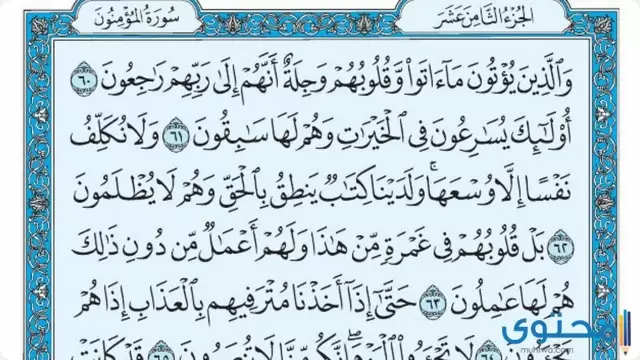 الجُزْءُ الثَّامِنَ عَشَرَ
سُورَةُ المُؤْمِنُونَ
وَٱلَّذِينَ يُؤْتُونَ مَآءَاتَوا۟ وَّقُلُوبُهُمْ وَجِلَةٌ أَنَّهُمْ إِلَىٰ رَبِّهِمْ رَٰجِعُونَ ٦٠
أُو۟لَٰٓئِكَ يُسَٰرِعُونَ فِى ٱلْخَيْرَٰتِ وَهُمْ لَهَا سَٰبِقُونَ ٦١ وَلَا نُكَلِّفُ
نَفْسًا إِلَّا وُسْعَهَا ۚ وَلَدَيْنَا كِتَٰبٌ يَنطِقُ بِٱلْحَقِّ وَهُمْ لَا يُظْلَمُونَ
٦٢ بَلْ قُلُوبُهُمْ فِى غَمْرَةٍ مِّنْ هَٰذَا وَلَهُمْ أَعْمَٰلٌ مِّن دُونِ ذَٰلِكَ
هُمْ لَهَا عَٰمِلُونَ ٦٣ حَتَّىٰٓ إِذَآ أَخَذْنَا مُتْرَفِيهِم بِٱلْعَذَابِ إِذَا هُمْ
لَا تَجْـَٔرُوا۟ ٱلْيَوْمَ ۖ إِنَّكُم مِّنَّا لَا تُنصَرُونَ ٦٥ قَدْ كَانَتْ
محتوى
muhtwa.com